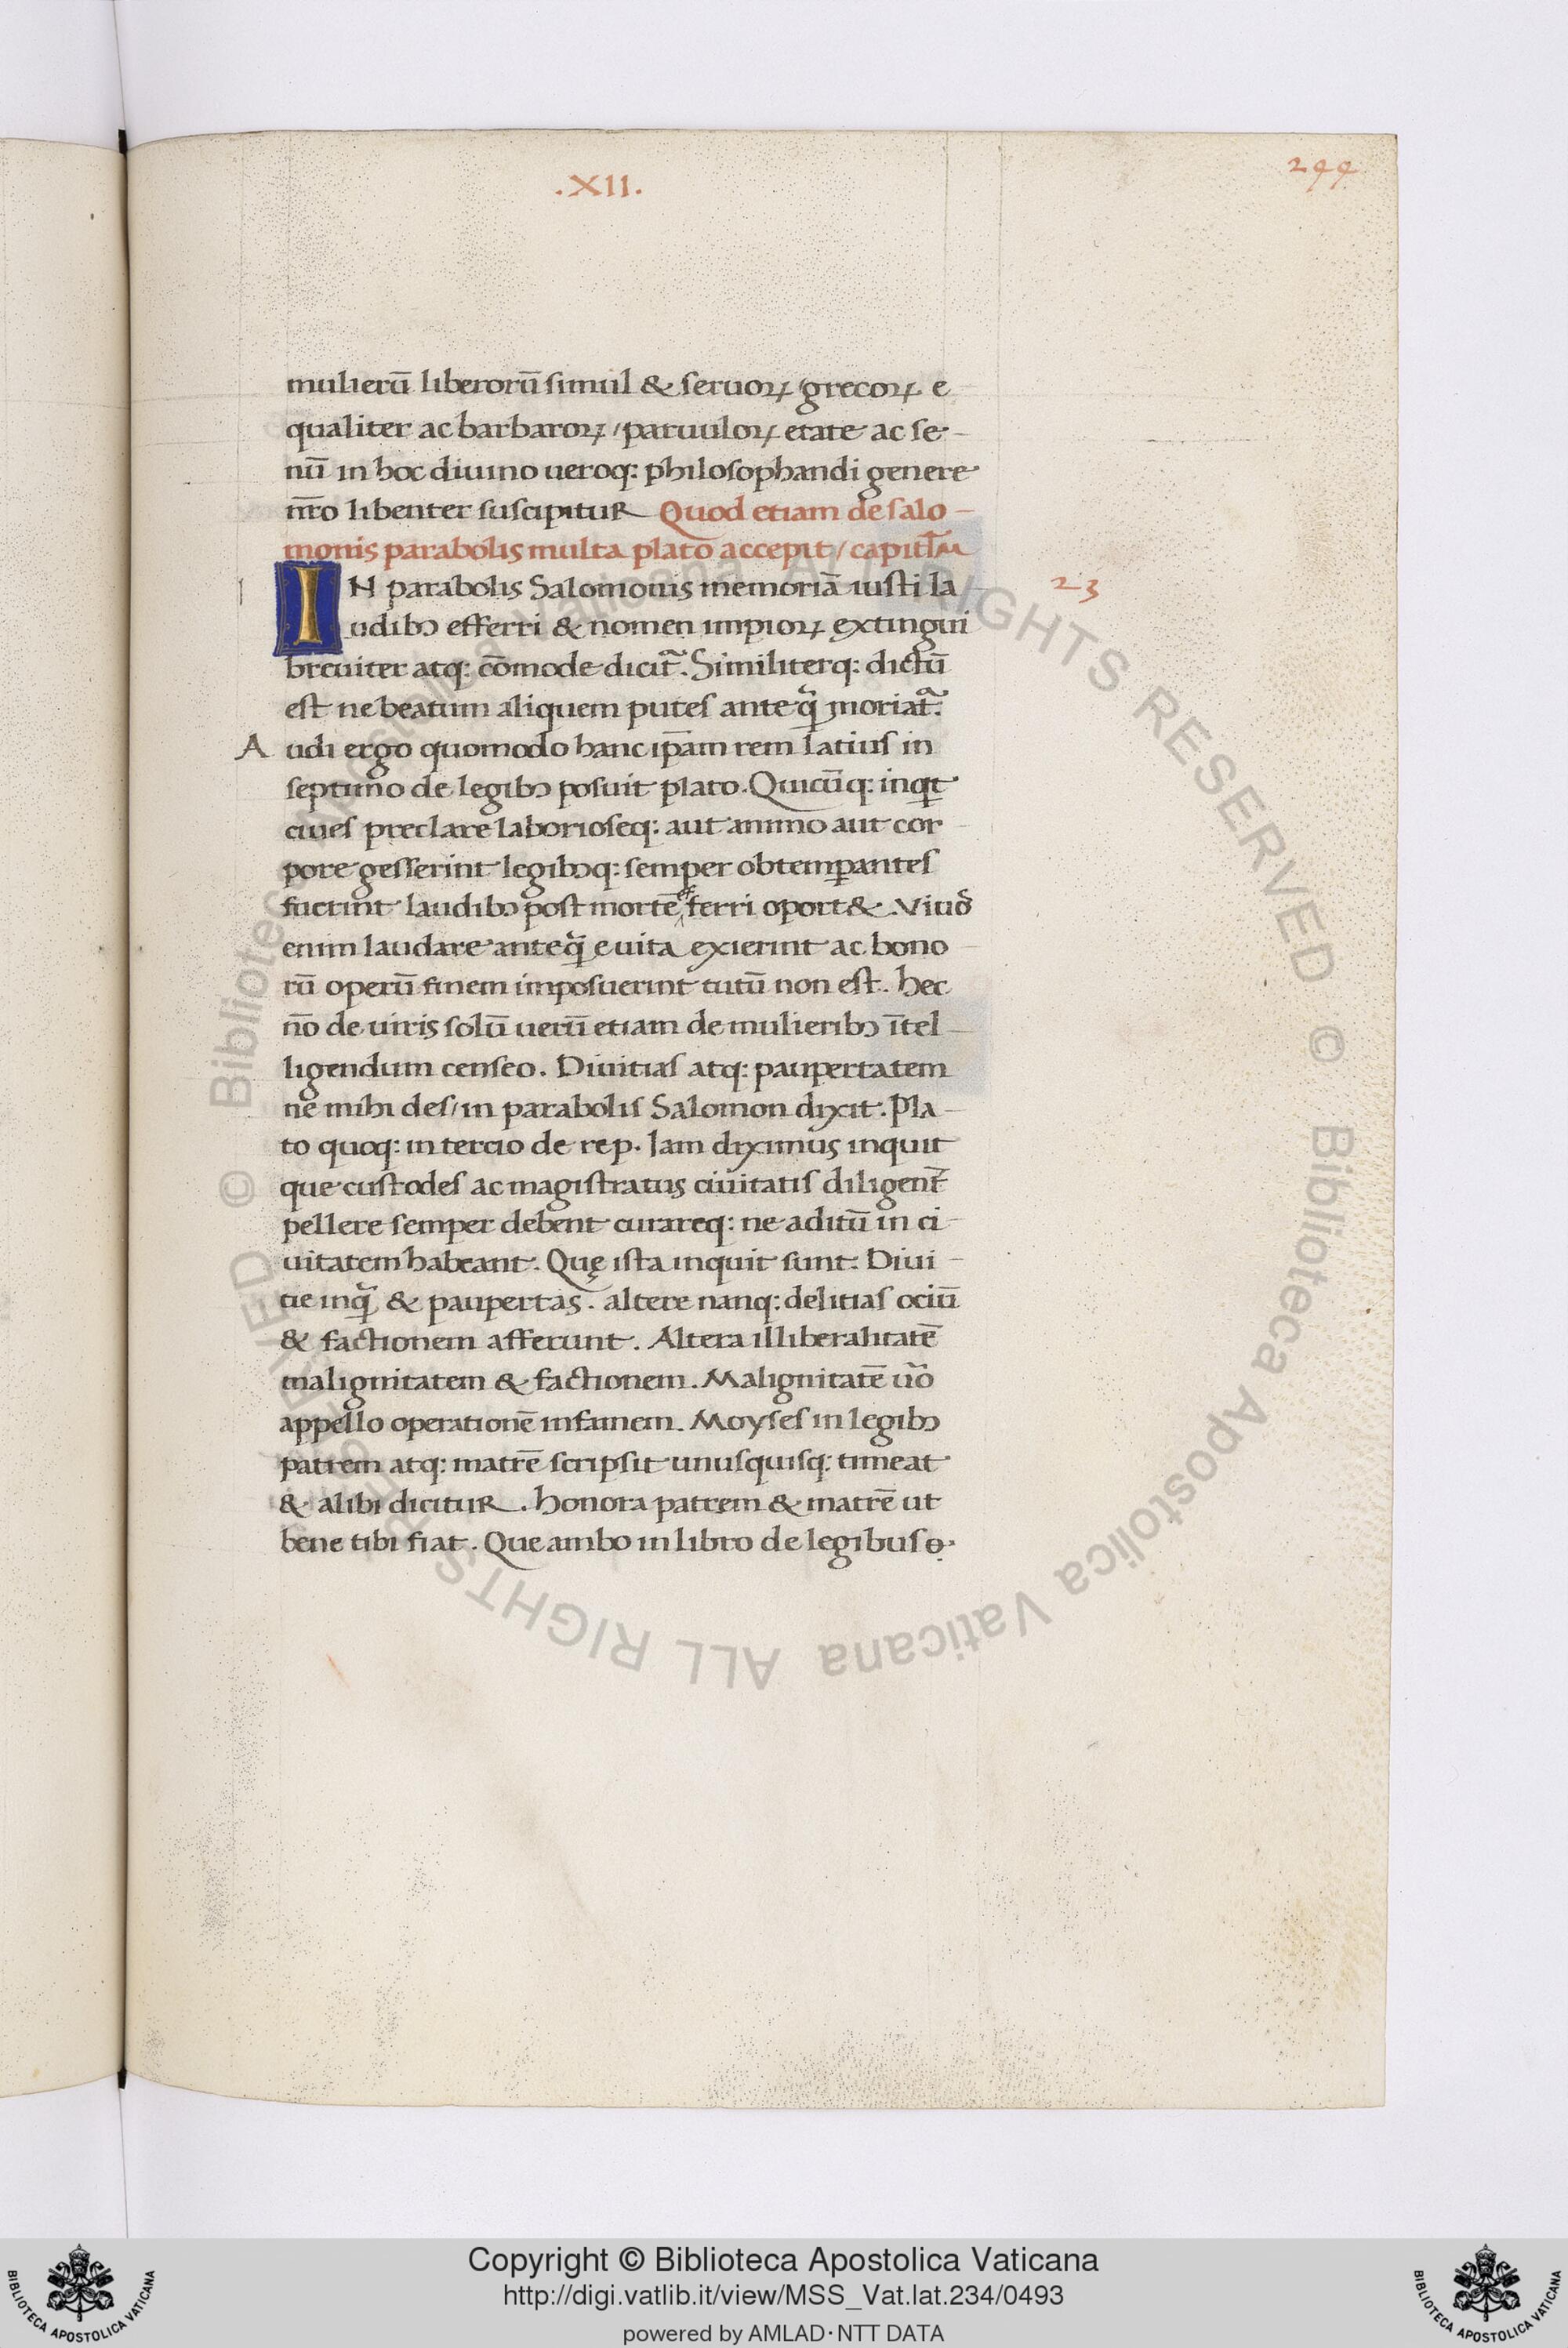 .XII.
244
mulierū liberorū simul & seruoꝝ / grecoꝝ e
qualiter ac barbaroꝝ / paruuloꝝ etate ac se-
nū in hoc diuino ueroq: philosophandi genere
nr̄o libenter suscipitur Quod etiam de salo-
monis parabolis multa plato accepit / capitl̄m
23
IN parabolis Salomonis memoriā iusti la
udibꝫ efferri & nomen impioꝝ extingui
breuiter atq: cōmode dicit᷑. Similiterq: dictū
est ne beatum aliquem putes anteqͣ moriat᷑.
Audi ergo quomodo hanc ip̄am rem latius in
septimo de legibꝫ posuit plato. Quicūq: inqͥt
ciues preclare laborioseq: aut animo aut cor
pore gesserint legibꝫq: semper obtemꝑantes
fuerint laudibꝫ post mortē efferri oport&. Viuoſ
enim laudare anteqͣ e uita exierint ac bono
rū operū finem imposuerint tutū non est. hec
nō de uiris solū uerū etiam de mulieribꝫ ītel
ligendum censeo. Diuitias atq: paupertatem
ne mihi des / in parabolis Salomon dixit. Pla-
to quoq: in tercio de rep. Iam diximus inquit
que custodes ac magistratus ciuitatis diligent̄
pellere semper debent curareq: ne aditū in ci-
uitatem habeant. Quę ista inquit sunt: Diui-
tie inqͣ & paupertas. altere nanq: delitias ociū
& factionem afferunt. Altera illiberalitatē
malignitatem & factionem. Malignitatē ūo
appello operationē infamem. Moyses in legibꝫ
patrem atq: matrē scripsit unusquisq: timeat
& alibi dicitur. honora patrem & matrē ut
bene tibi fiat. Que ambo in libro de legibus
© Biblioteca Apostolica Vaticana ALL RIGHTS RESERVED © Biblioteca Apostolica Vaticana ALL RIGHTS RESERVED
BIBLIOTECA APOSTOLICA VATICANA
Copyright © Biblioteca Apostolica Vaticana
http://digi.vatlib.it/view/MSS_Vat.lat.234/0493
powered by AMLAD·NTT DATA
BIBLIOTECA APOSTOLICA VATICANA